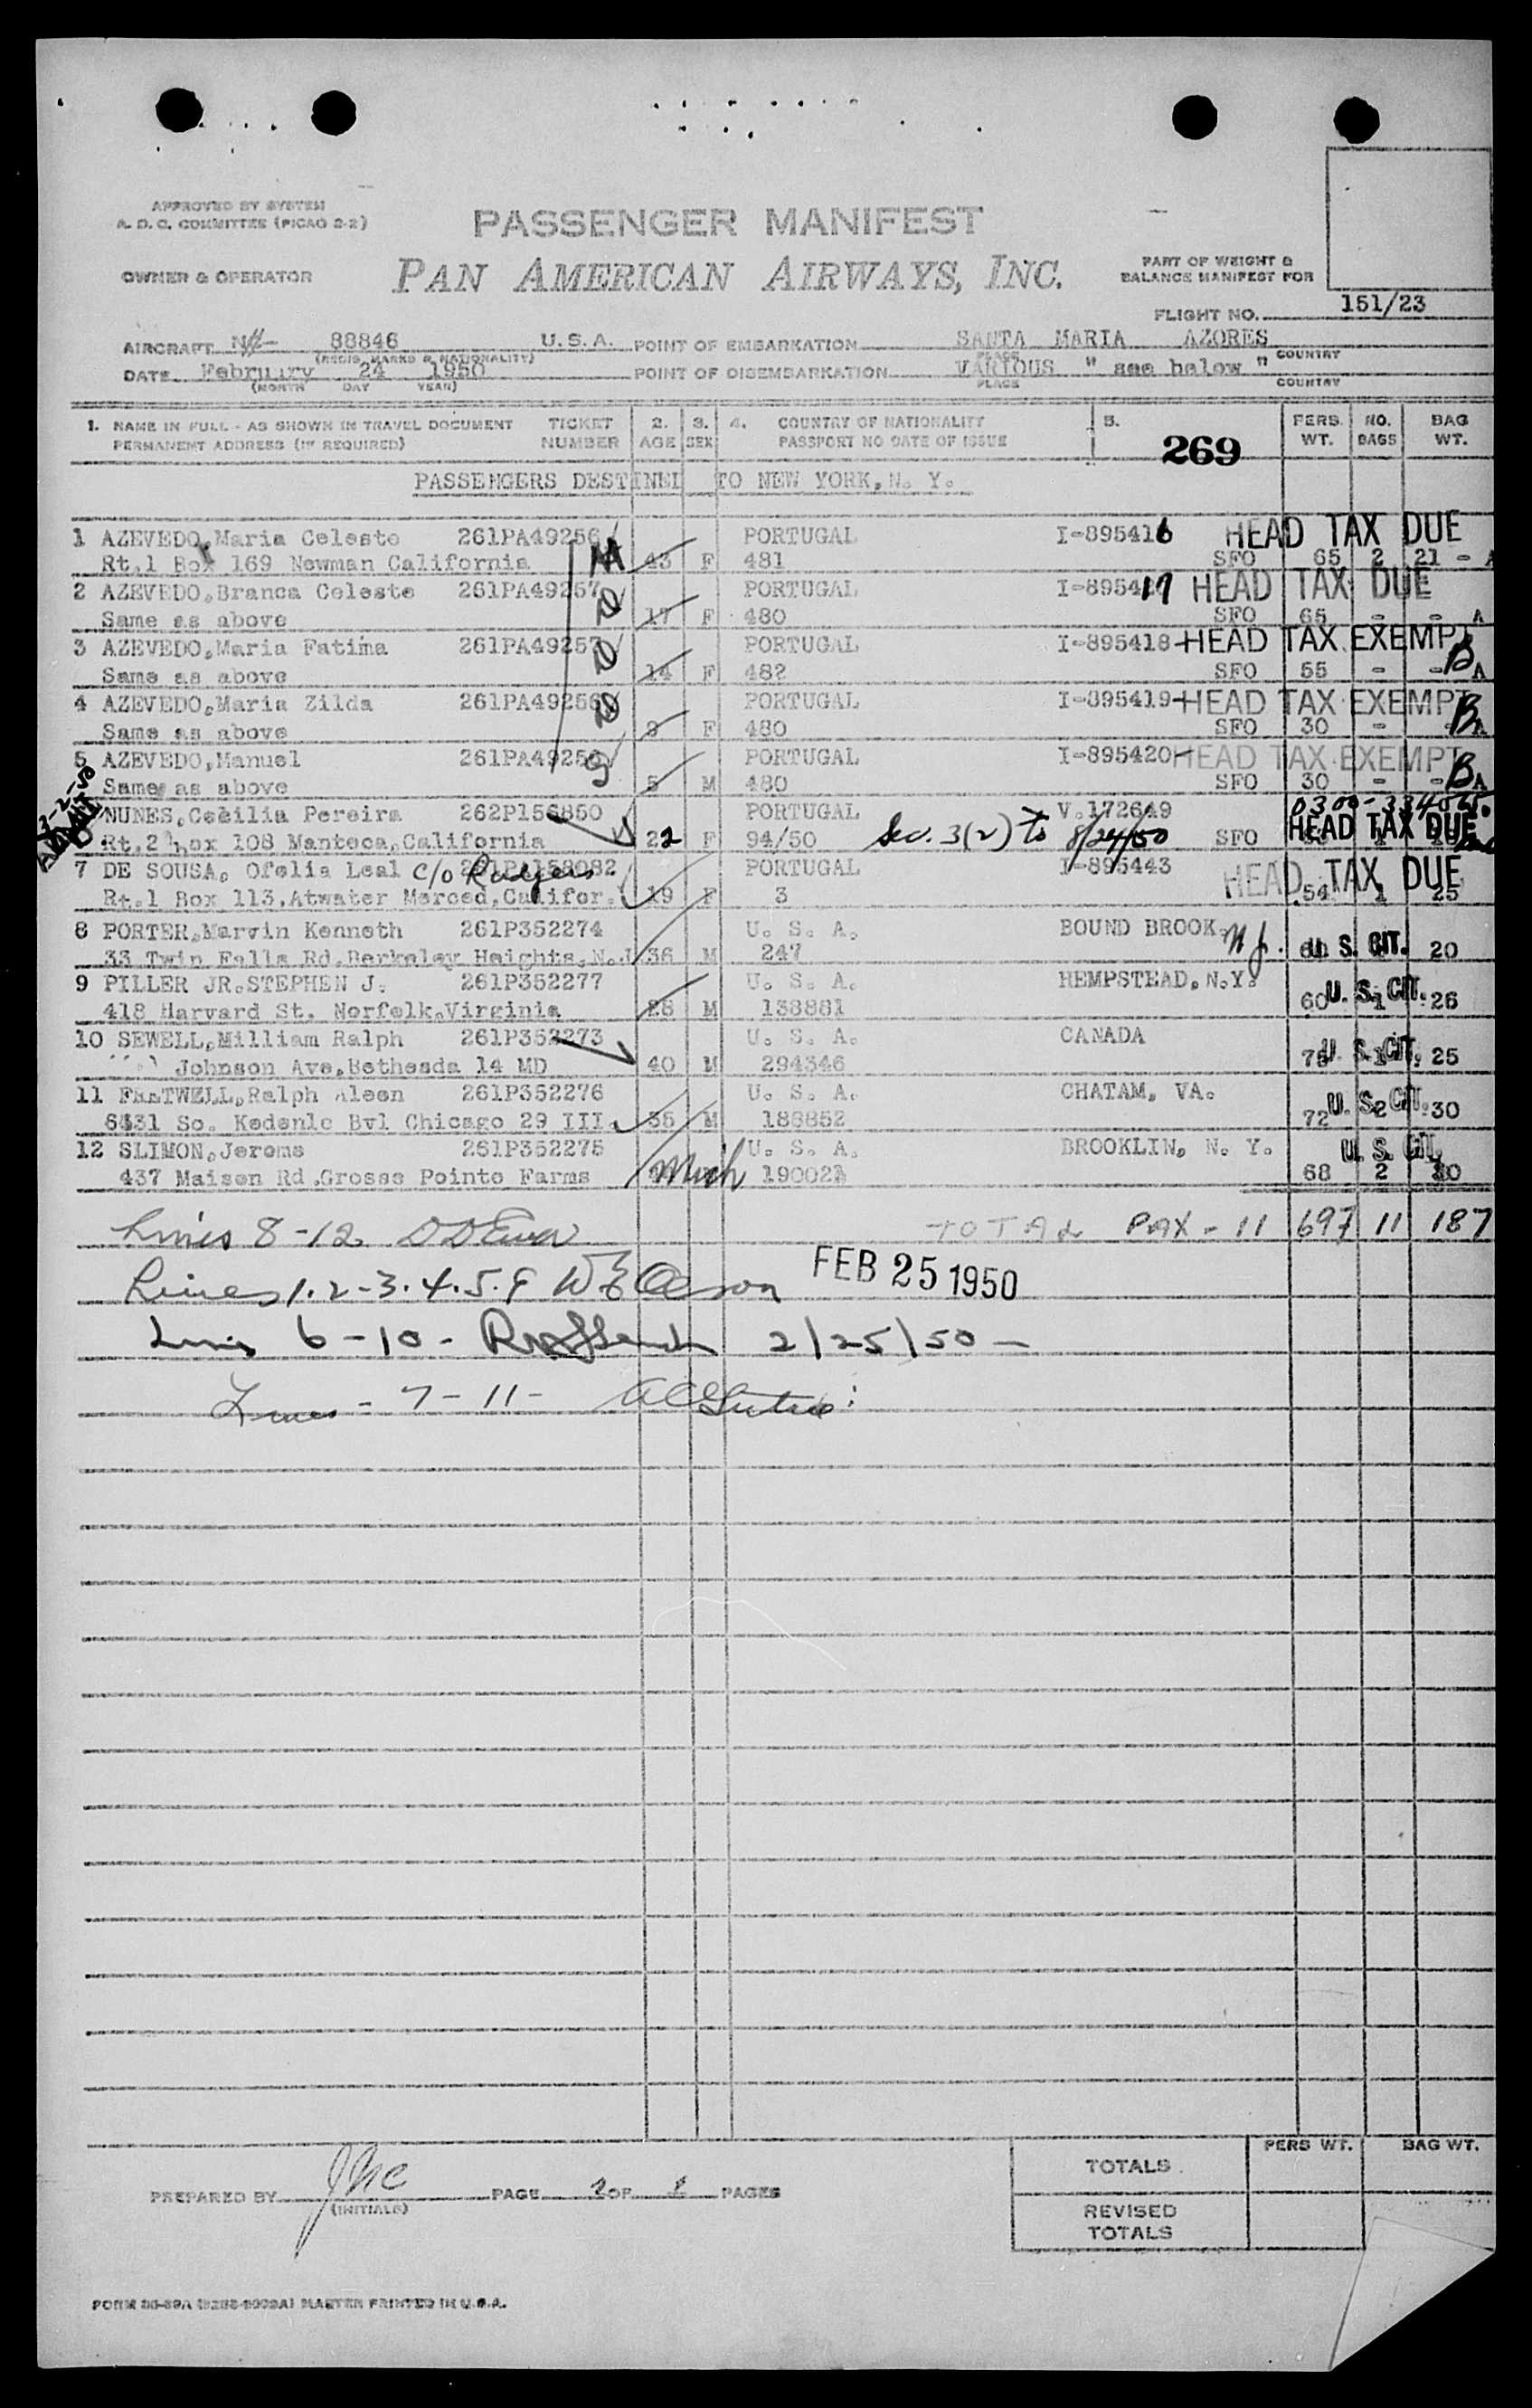 APPROVED BY SYSTEM
A. D. C. COMMITTEE (PICAO 2-2)
PASSENGER MANIFEST
OWNER & OPERATOR PAN AMERICAN AIRWAYS, INC.
PART OF WEIGHT &
BALANCE MANIFEST FOR
FLIGHT NO. 151/23
AIRCRAFT 88846 U.S.A. POINT OF EMBARKATION SANTA MARIA AZORES
(REGIS. MARKS & NATIONALITY) PLACE COUNTRY
DATE February 24 1950 POINT OF DISEMBARKATION VARIOUS " see below "
(MONTH DAY YEAR) PLACE COUNTRY
1. NAME IN FULL - AS SHOWN IN TRAVEL DOCUMENT TICKET 2. 3. 4. COUNTRY OF NATIONALITY 5. PERS. NO. BAG
PERMANENT ADDRESS (IF REQUIRED) NUMBER AGE SEX PASSPORT NO DATE OF ISSUE 269 WT. BAGS WT.
PASSENGERS DESTINED TO NEW YORK, N. Y.
1 AZEVEDO,Maria Celeste 261PA49256 PORTUGAL I-895416 HEAD TAX DUE
Rt.1 Box 169 Newman California 43 F 481 SFO 65 2 21 - A
2 AZEVEDO,Branca Celeste 261PA49257 PORTUGAL I-895417 HEAD TAX DUE
Same as above 17 F 480 SFO 65 - - A
3 AZEVEDO,Maria Fatima 261PA49257 PORTUGAL I-895418 HEAD TAX EXEMPT
Same as above 14 F 482 SFO 55 - - B A
4 AZEVEDO,Maria Zilda 261PA49256 PORTUGAL I-895419 HEAD TAX EXEMPT
Same as above F 480 SFO 30 - B A
5 AZEVEDO,Manuel PORTUGAL I-895420 HEAD TAX EXEMPT
Same as above 5 M 480 SFO 30 - - B A
NUNES,Cecilia Pereira 262P156850 PORTUGAL V.172649
Rt.2 box 108 Manteca,California 22 F 94/50 Sec. 3(2) to 8/24/50 SFO HEAD TAX DUE
7 DE SOUSA, Ofelia Leal c/o PORTUGAL I-895443
Rt.1 Box 113,Atwater Merced,Califor. 19 F 3 HEAD TAX DUE 54 1 25
8 PORTER,Marvin Kenneth 261P352274 U. S. A. BOUND BROOK. N.J.
33 Twin Falls Rd.Berkeley Heights,N.J 36 M 247 U. S. CIT. 20
9 PILLER JR.STEPHEN J. 261P352277 U. S. A. HEMPSTEAD,N.Y.
418 Harvard St. Norfolk,Virginia 28 M 138881 60 U. S. CIT. 26
10 SEWELL,William Ralph 261P352273 U. S. A. CANADA
Johnson Ave,Bethesda 14 MD 40 M 294346 U. S. CIT. 25
11 FRETWELL,Ralph Aleen 261P352276 U. S. A. CHATAM, VA.
So. Kedenlc Bvl Chicago 29 III. 35 M 186852 72 U. S. CIT. 30
12 SLIMON,Jerome 261P352275 U. S. A. BROOKLIN, N. Y.
437 Maison Rd.Grosse Pointe Farms Mich U. S. CIT. 68 2
Lines 8-12 TOTAL PAX - 11 697 11 187
Lines 1.2-3.4.5. FEB 25 1950
Lines 6-10- 2/25/50 -
Lines - 7-11-
PREPARED BY PAGE OF PAGES
(INITIALS)
PERS WT. BAG WT.
TOTALS
REVISED
TOTALS
MASTER PRINTED IN U.S.A.